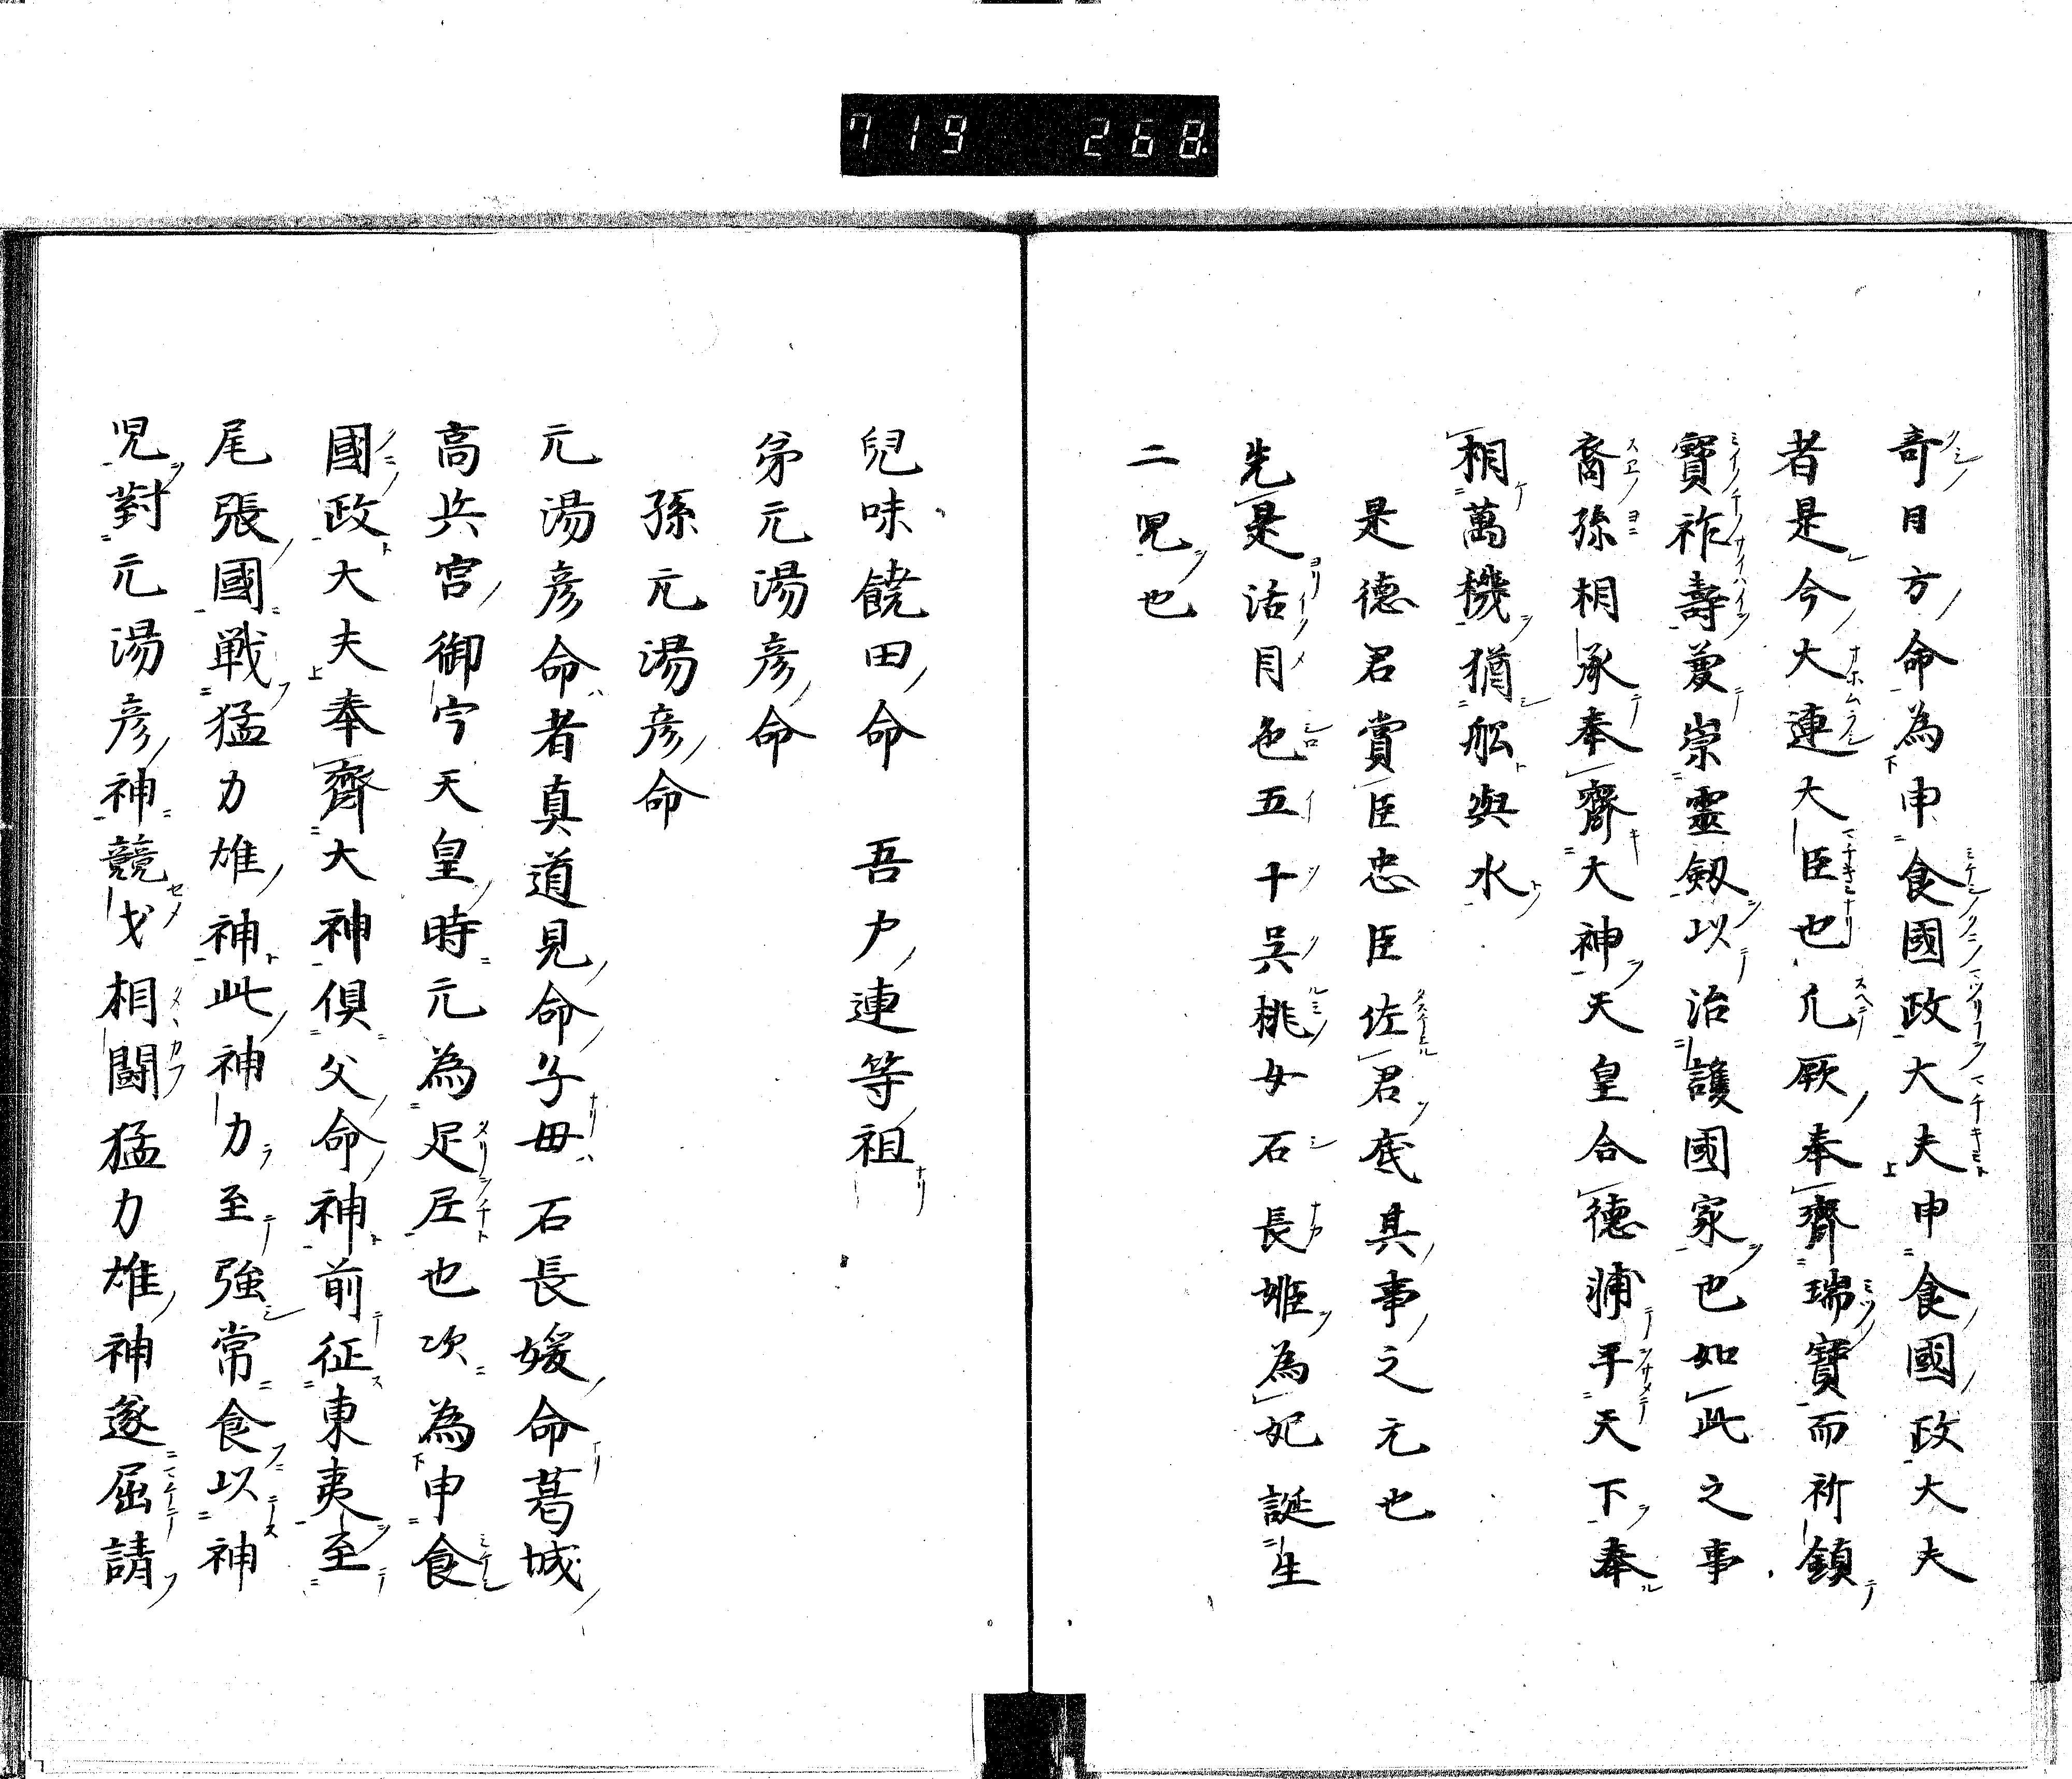 719 268
奇日方命為申食國政大夫申食國政大夫
者是今大連大臣也凢厥奉齊瑞寶而祈鎮
寶祚壽蔓崇靈劔以治護國家也如此之事
裔孫相承奉齋大神天皇合德浦平天下奉
相萬機猶舩與水
是德君賞臣忠臣佐君底其事之元也
先是活目色五十呉桃女石長姫為妃誕生
二児也
兒味饒田命 吾尸連等祖
弟元湯彦命
孫元湯彦命
元湯彦命者真道見命子毋石長媛命葛城
高兵宮御宁天皇時元為足尼也次為申食
國政大夫奉齊大神俱父命神前征東夷至
尾張國戦猛力雄神此神力至強常食以神
児對元湯彦神競戈相闘猛力雄神遂屈請